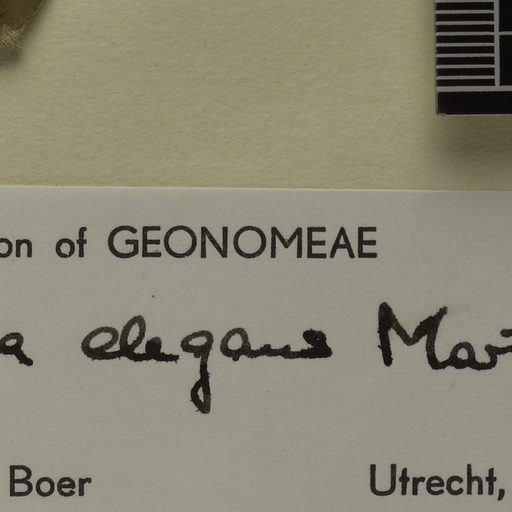 on of GEONOMEAE
a elegans Mart
Boer Utrecht,